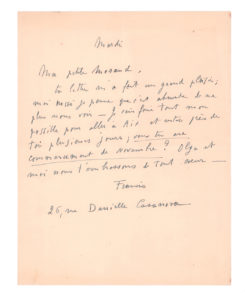 Mardi
Ma petite Morand,
ta lettre m'a fait un grand plaisir,
moi aussi je pense que c'est absurde de ne
plus nous voir — Je vais faire tout mon
possible pour aller à Aix et rester près de
toi plusieurs jours, vous tu au
commencement de Novembre ? Olga et
moi nous t'embrassons de tout coeur —
Francis
26, rue Danielle Casanova